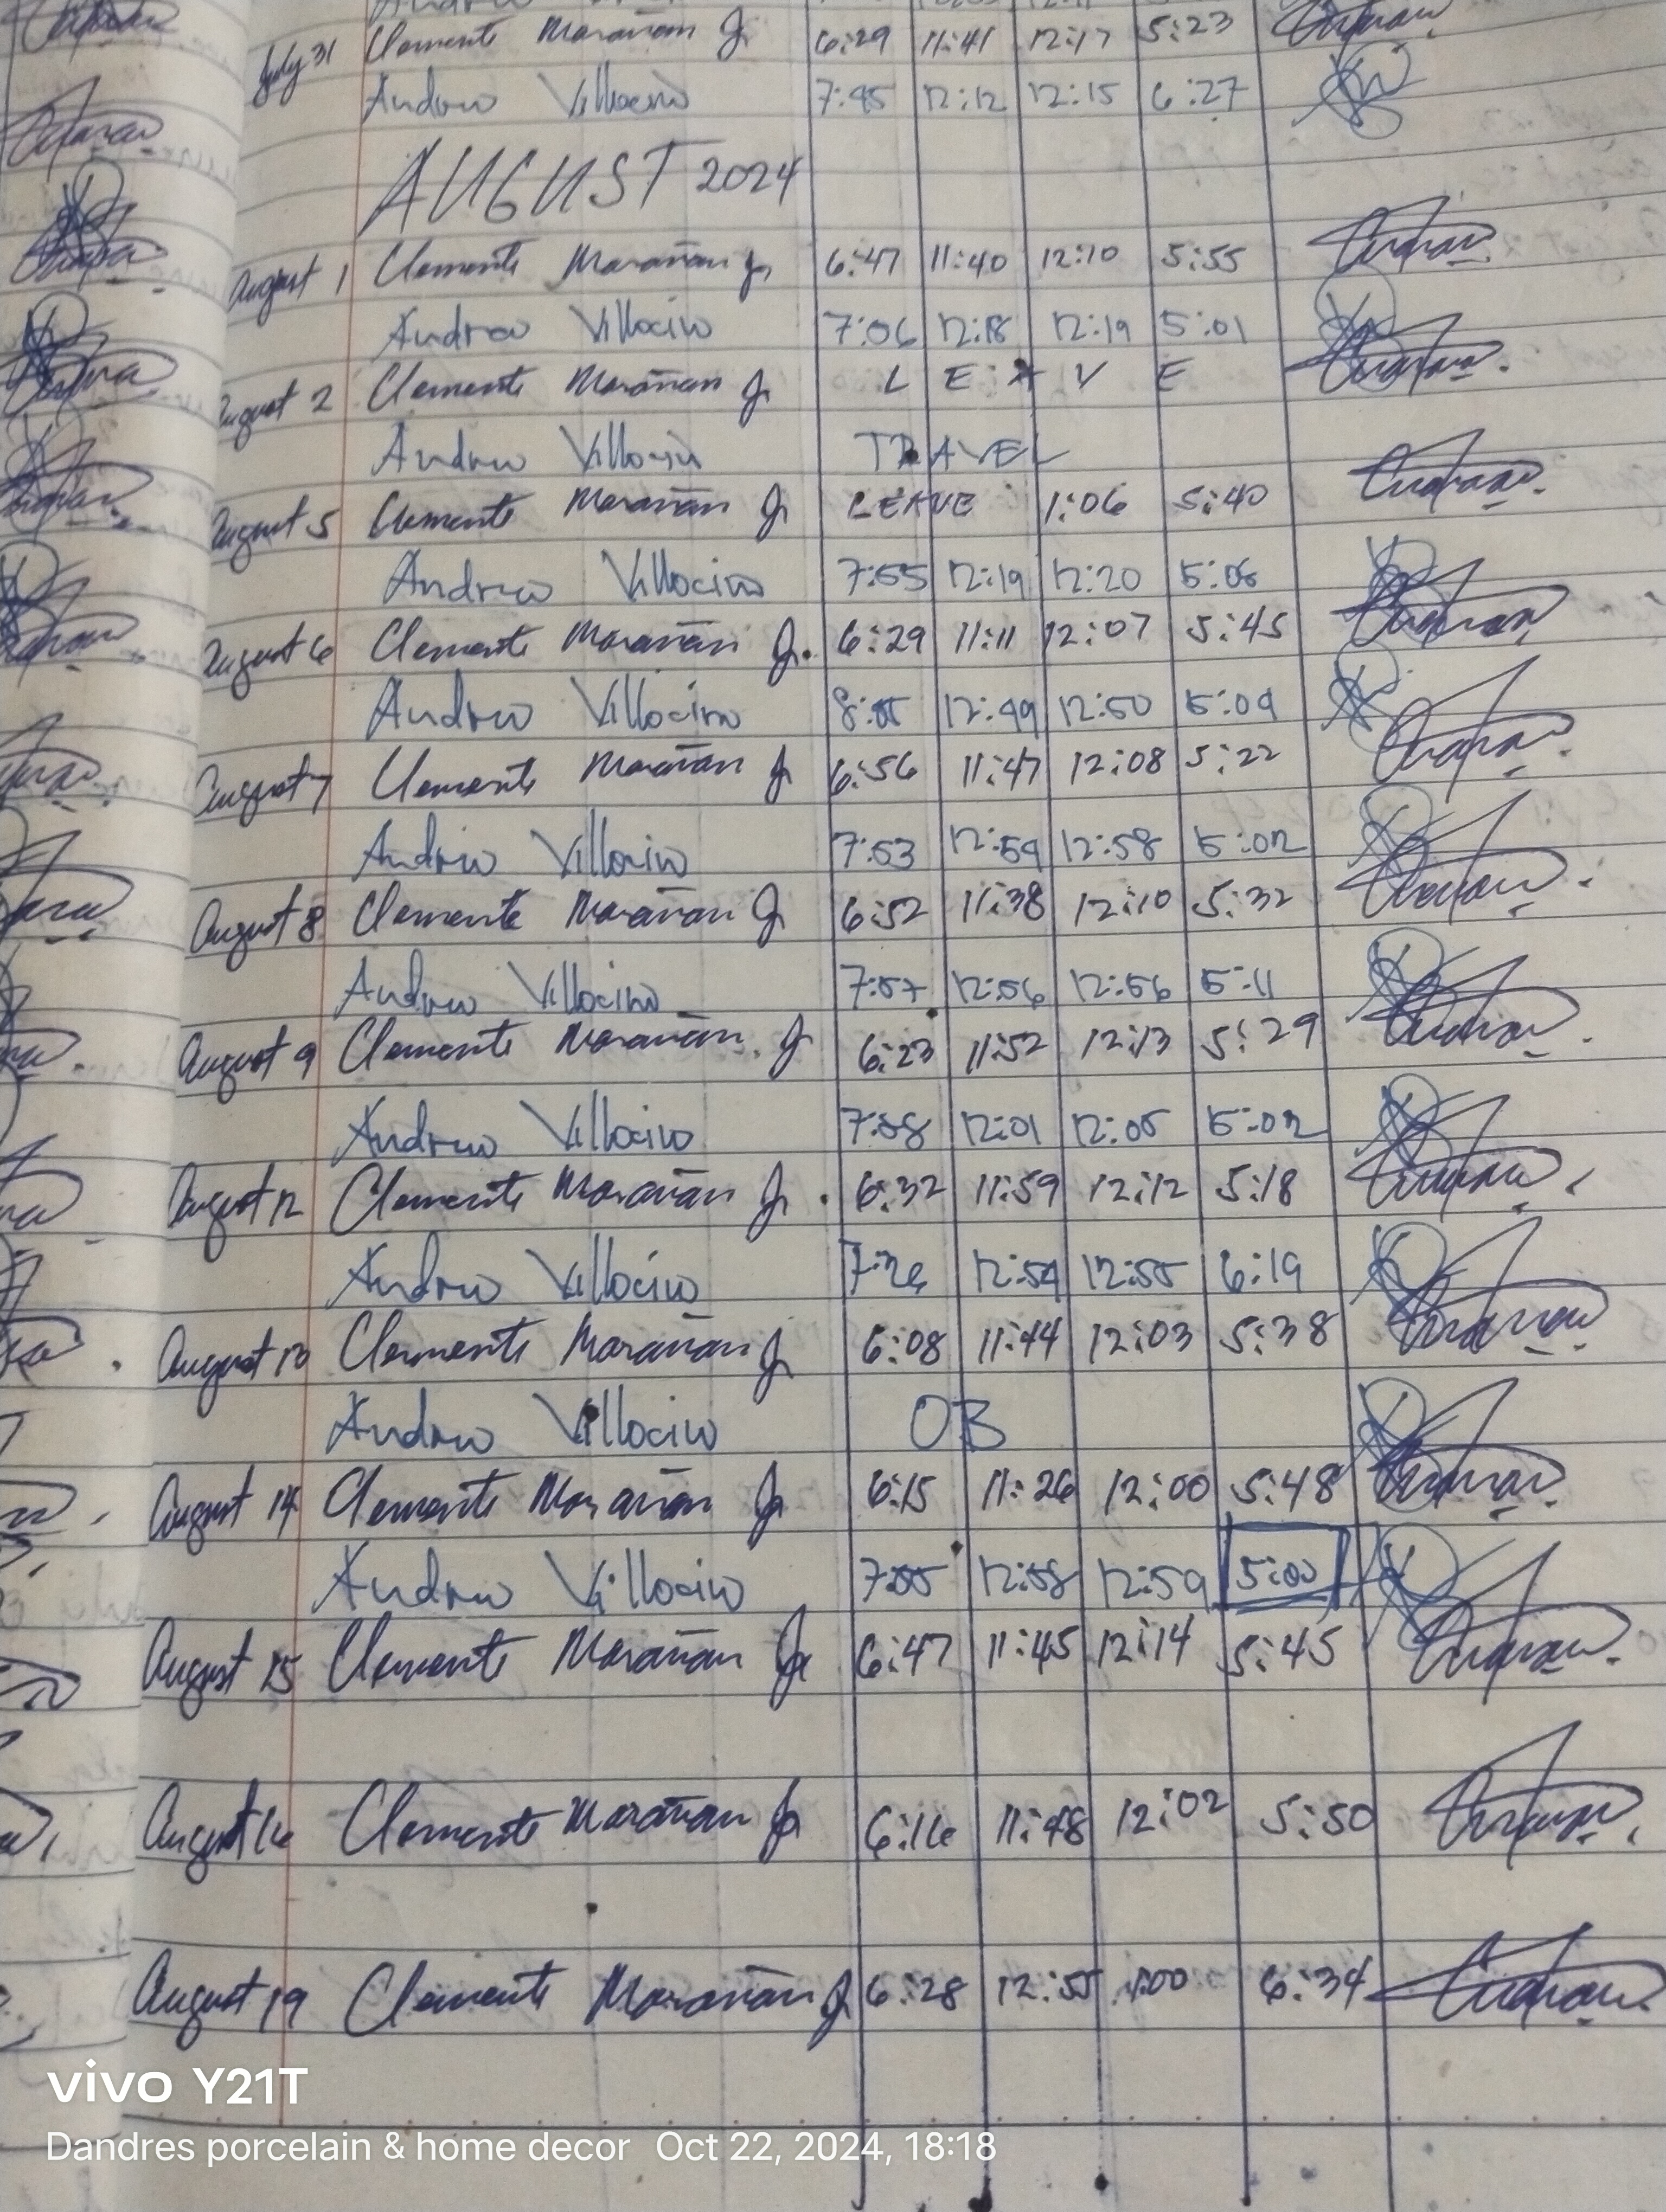 July 31 Clemente Marañan Jr 6:29 11:41 12:17 5:23
Andrew Villocino 7:45 12:12 12:15 6:27
AUGUST 2024
August 1 Clemente Marañan Jr 6:47 11:40 12:10 5:55
Andrew Villocino 7:06 12:18 12:19 5:01
August 2 Clemente Marañan Jr L E A V E
Andrew Villocino TRAVEL
August 5 Clemente Marañan Jr LEAVE 1:06 5:40
Andrew Villocino 7:55 12:19 12:20 5:06
August 6 Clemente Marañan Jr. 6:29 11:11 12:07 5:45
Andrew Villocino 12:49 12:50 5:04
August 7 Clemente Marañan Jr 6:56 11:47 12:08 5:22
Andrew Villocino 7:53 12:54 12:58 5:02
August 8 Clemente Marañan Jr 6:52 11:38 12:10 5:32
Andrew Villocino 7:57 12:56 12:56 5:11
August 9 Clemente Marañan Jr 6:23 11:52 12:13 5:29
Andrew Villocino 7:58 12:01 12:05 5:02
August 12 Clemente Marañan Jr. 6:32 11:59 12:12 5:18
Andrew Villocino 12:54 12:55 6:19
August 13 Clemente Marañan Jr 6:08 11:44 12:03 5:38
Andrew Villocino OB
August 14 Clemente Marañan Jr 6:15 11:26 12:00 5:48
Andrew Villocino 7:55 12:58 12:59 5:00
August 15 Clemente Marañan Jr 6:47 11:45 12:14 5:45
August 16 Clemente Marañan Jr 6:16 11:48 12:02 5:50
August 19 Clemente Marañan Jr 6:28 12:55 1:00 6:34
vivo Y21T
Dandres porcelain & home decor Oct 22, 2024, 18:18